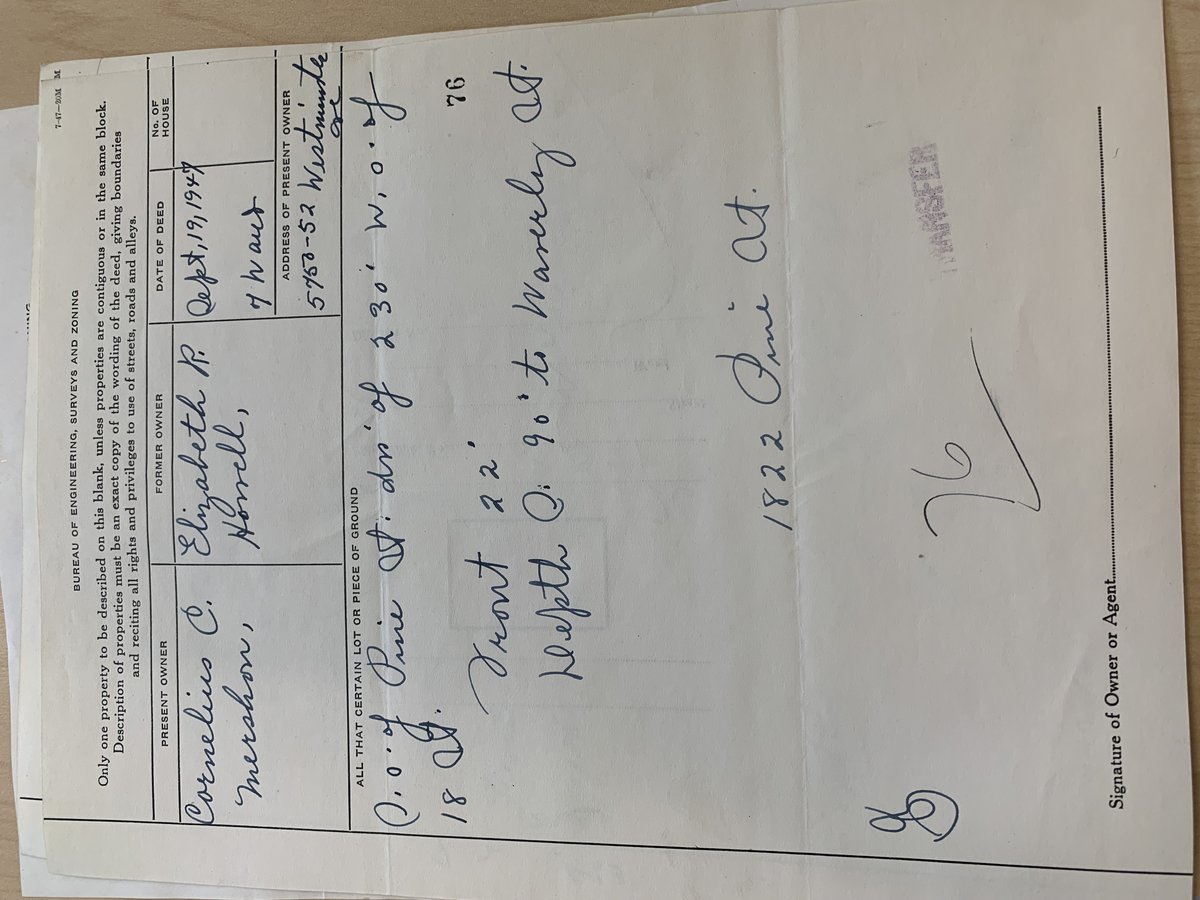 7-47—20M M
BUREAU OF ENGINEERING, SURVEYS AND ZONING
Only one property to be described on this blank, unless properties are contiguous or in the same block.
Description of properties must be an exact copy of the wording of the deed, giving boundaries
and reciting all rights and privileges to use of streets, roads and alleys.
PRESENT OWNER
Cornelius C.
Mershon,
FORMER OWNER
Elizabeth R.
Howell,
DATE OF DEED
Sept, 19, 1947
7 Ward
No. OF
HOUSE
ADDRESS OF PRESENT OWNER
5750-52 Westminster
ave
ALL THAT CERTAIN LOT OR PIECE OF GROUND
S. o. of Pine St. dis of 230' W. o. of
18 St.
76
Front 22'
Depth S. 90' to Waverly St.
1822 Pine St.
TRANSFER
76
Signature of Owner or Agent